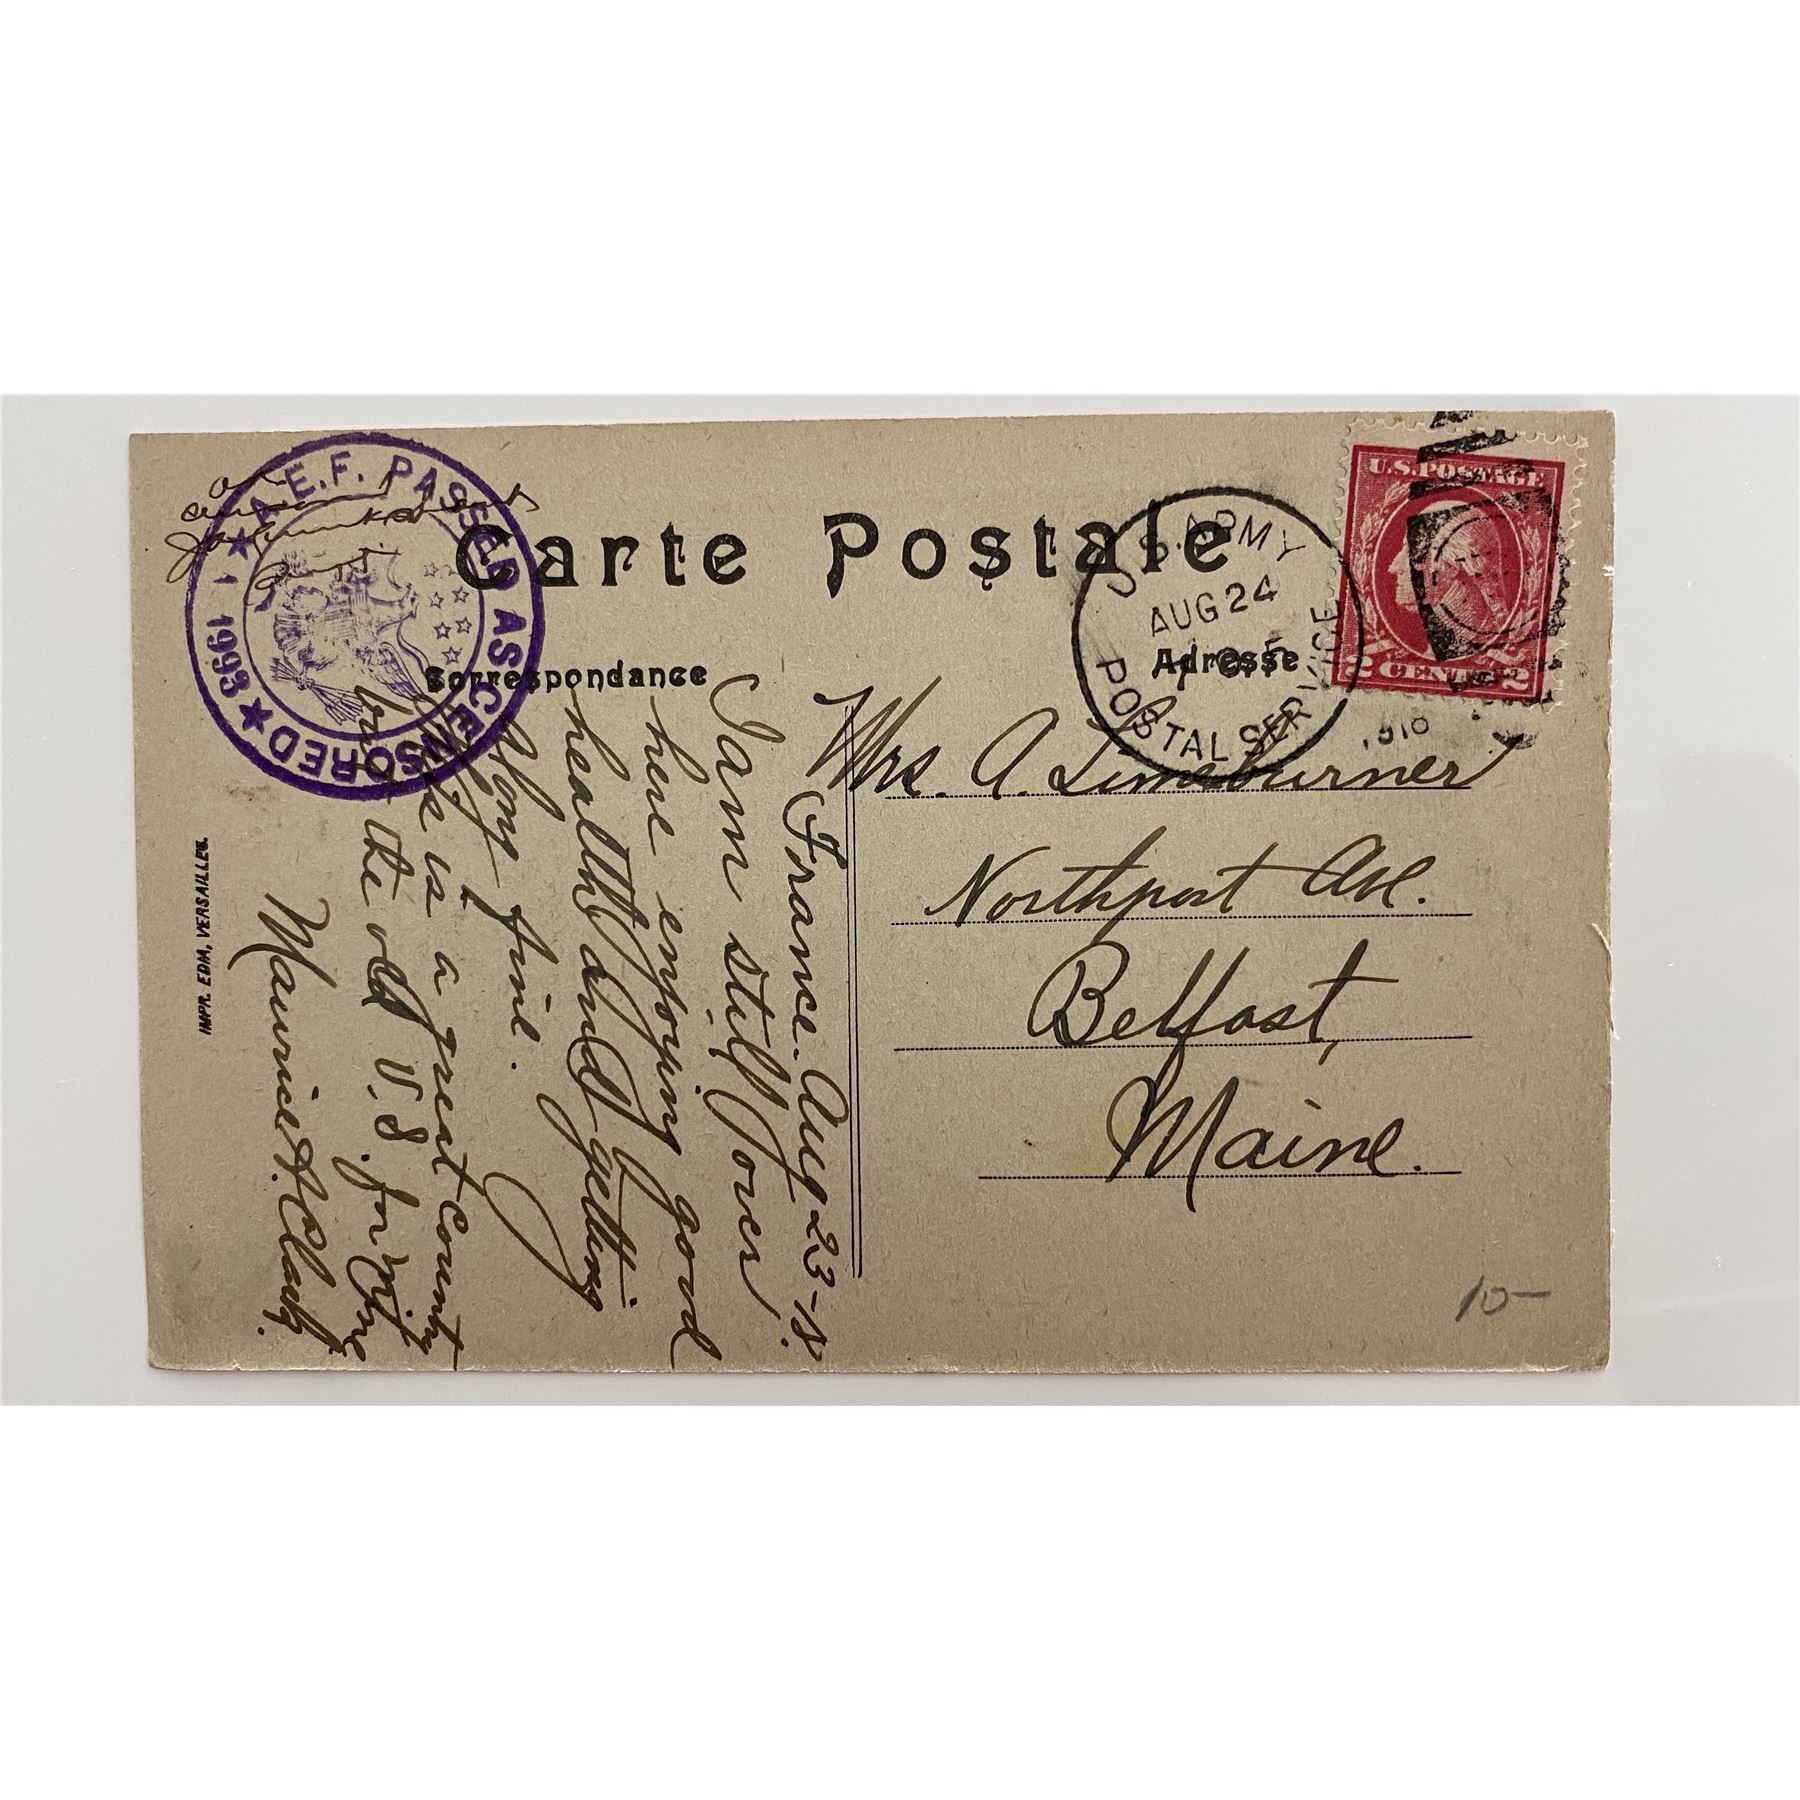 Carte Postale
Correspondance
Adresse
A.E.F. PASSED AS CENSORED
1993
U.S. ARMY
POSTAL SERVICE
AUG 24
1918
U.S. POSTAGE
2 CENTS 2
Mrs. A. Limeburner
Northport Ave.
Belfast,
Maine.
France. Aug 23-18.
I am still over
here enjoying good
health and getting
along fine.
This is a great country
but the old U.S. for mine
Maurice A. Clark.
IMPR. EDM, VERSAILLES.
10-